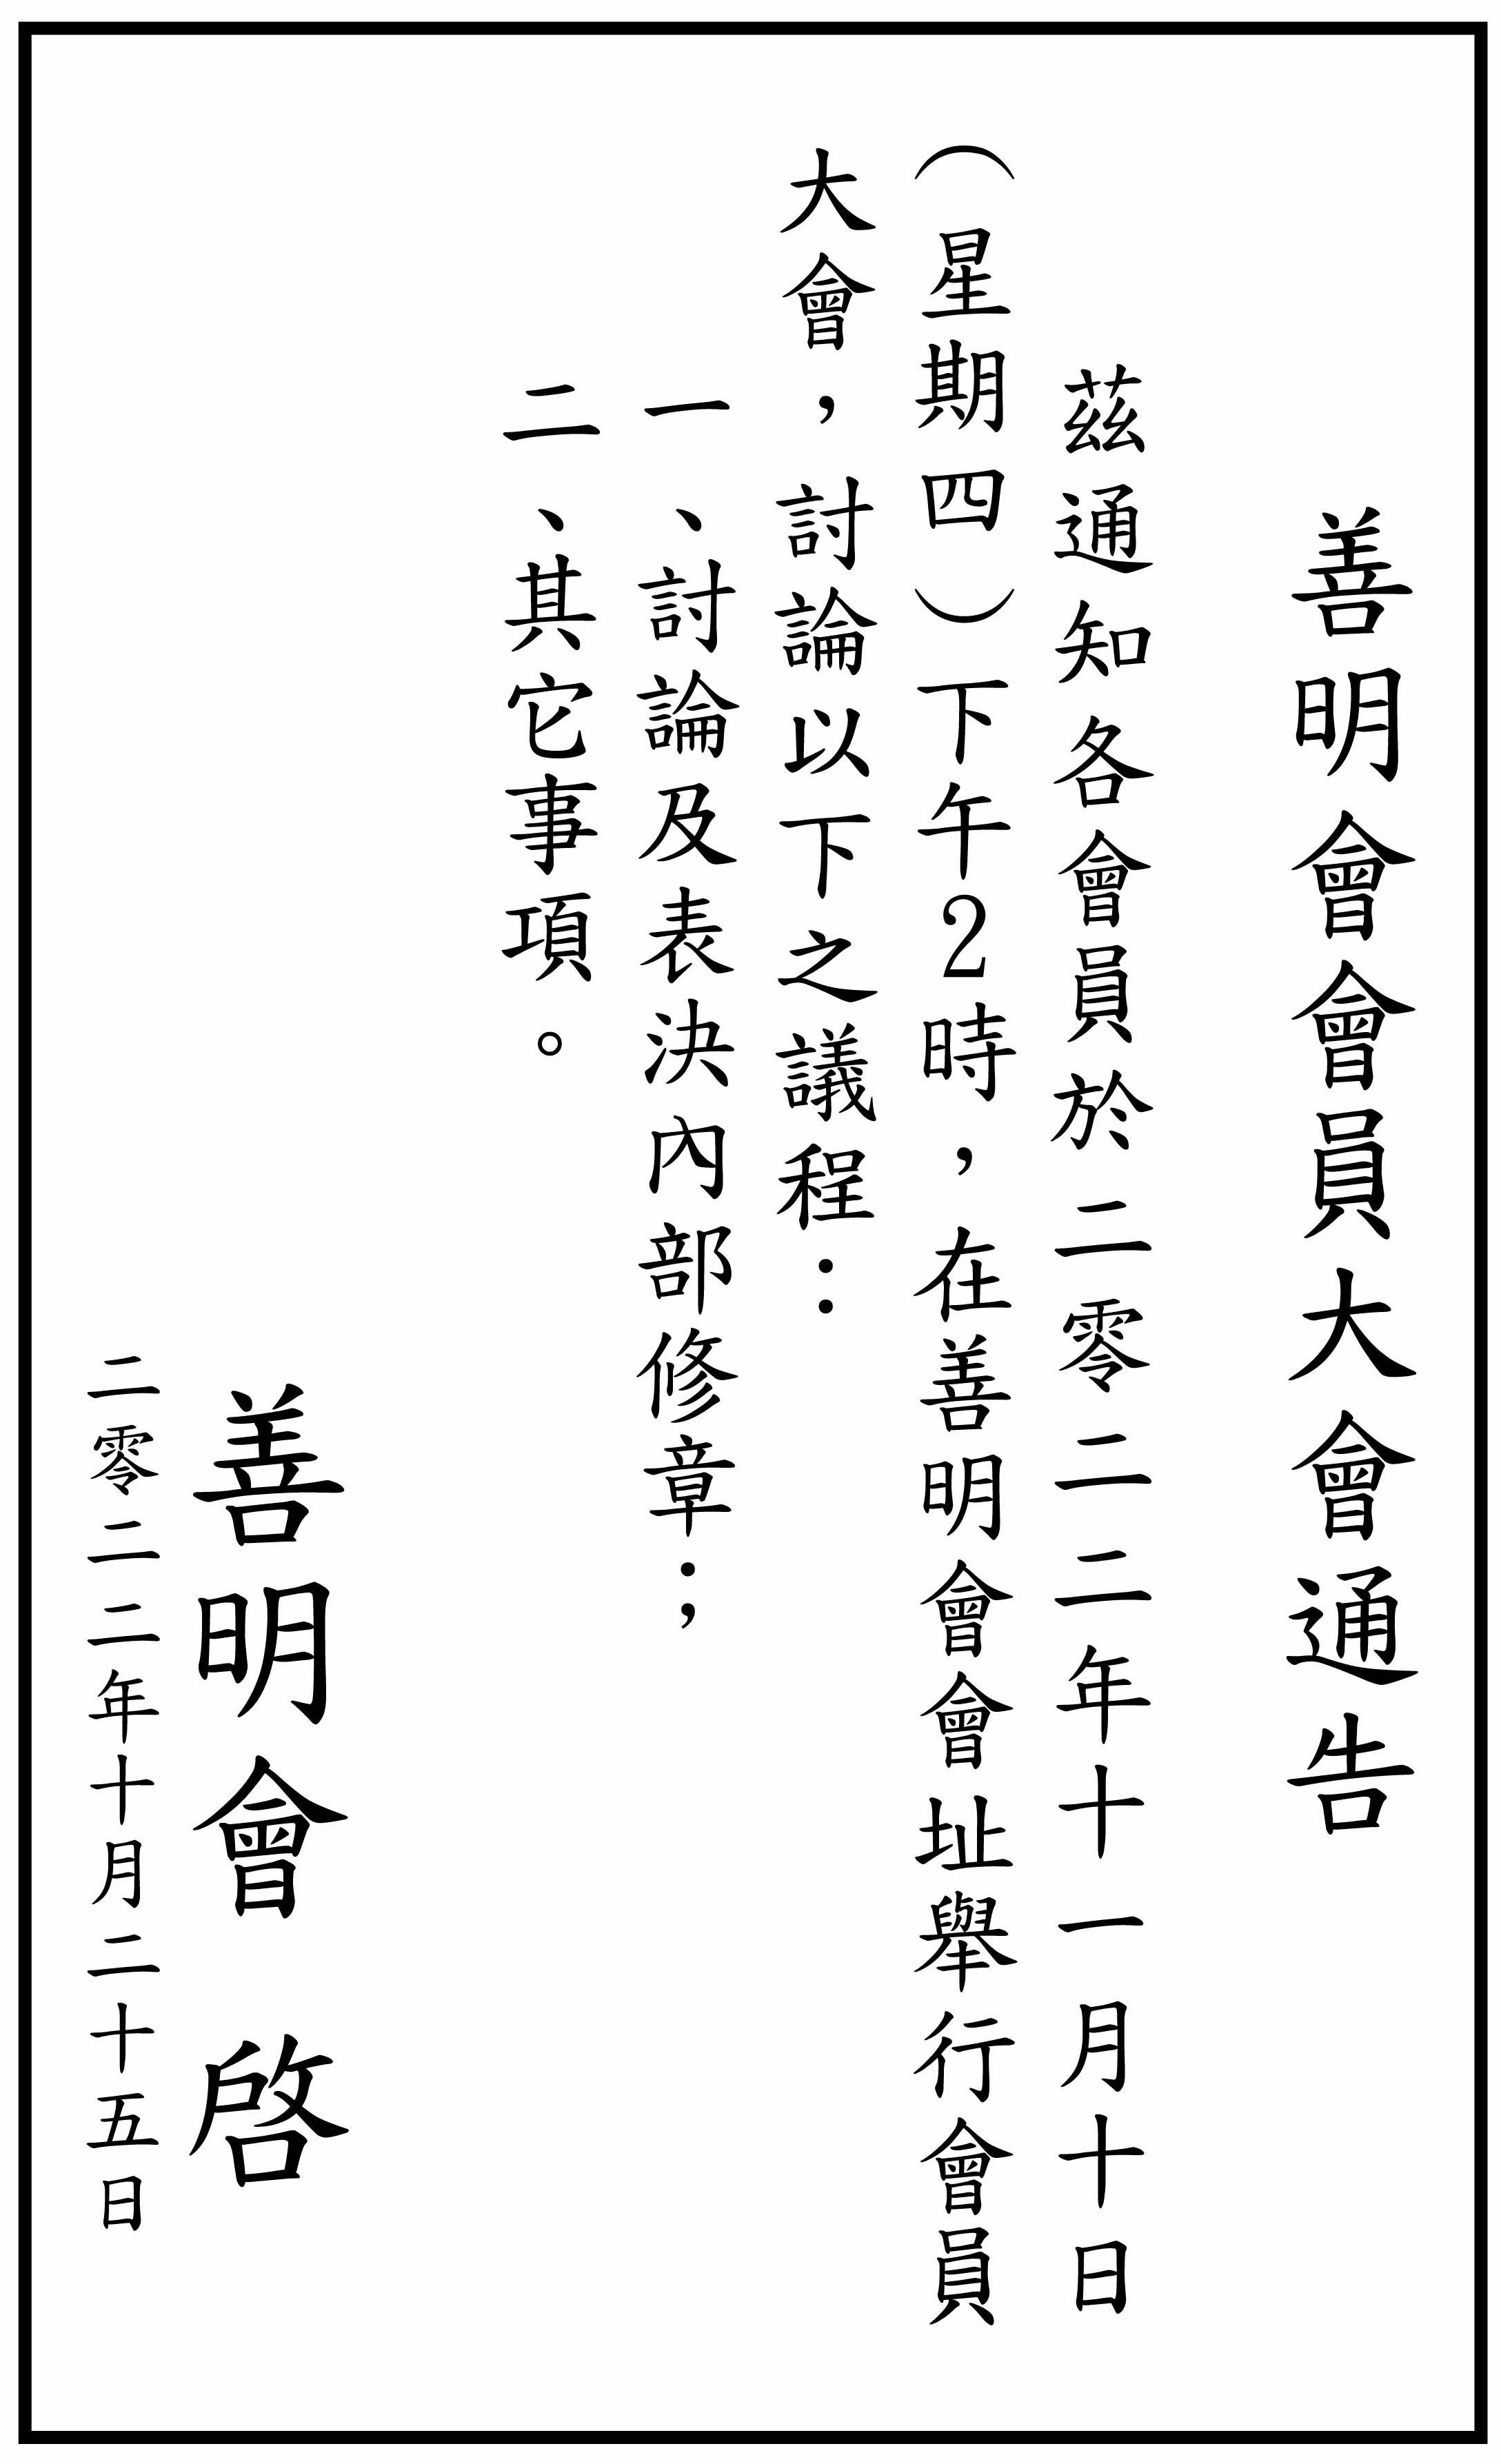 善明會會員大會通告
茲通知各會員於二零二二年十一月十日
（星期四）下午2時，在善明會會址舉行會員
大會，討論以下之議程：
一、討論及表決內部修章；
二、其它事項。
善明會 啓
二零二二年十月二十五日